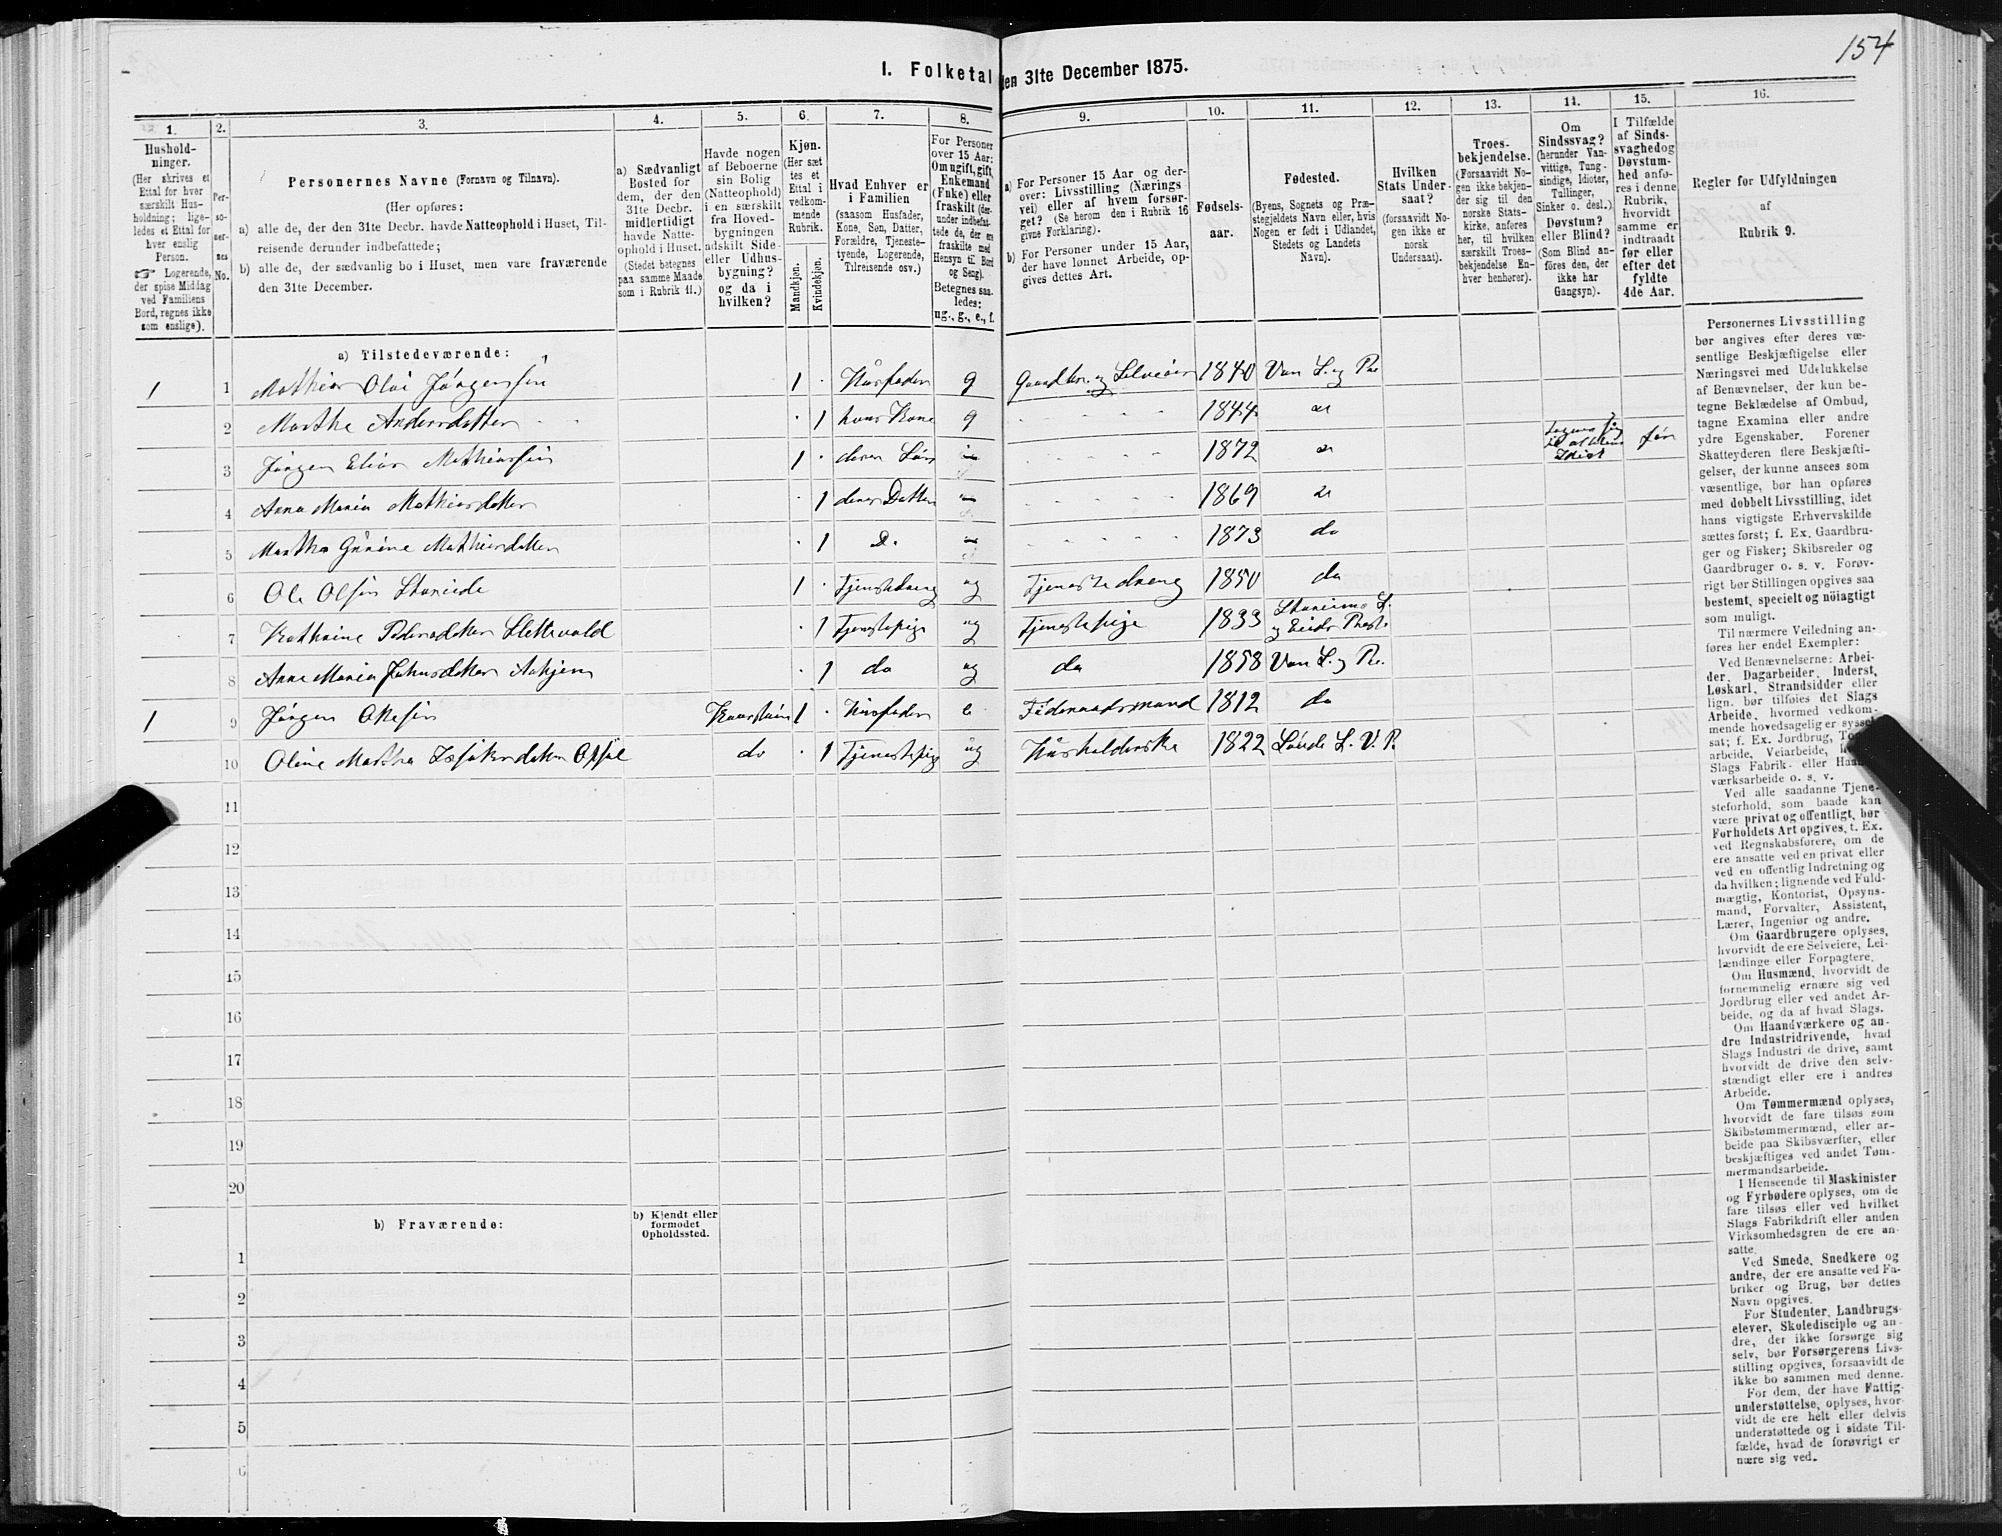 154
I. Folketal den 31te December 1875.
1. 2. 3. 4. 5. 6. 7. 8. 9. 10. 11. 12. 13. 14. 15. 16.
Hushold-
ninger.
(Her skrives et
Ettal for hver
særskilt Hus-
holdning; lige-
ledes et Ettal for
hver enslig
Person.
☞ Logerende,
der spise Middag
ved Familiens
Bord, regnes ikke
som enslige).
Per-
so-
ner-
nes
No.
Personernes Navne (Fornavn og Tilnavn).
(Her opføres:
a) alle de, der den 31te Decbr. havde Natteophold i Huset, Til-
reisende derunder indbefattede;
b) alle de, der sædvanlig bo i Huset, men vare fraværende
den 31te December.
a) Sædvanligt
Bosted for
dem, der den
31te Decbr.
midlertidigt
havde Natte-
ophold i Huset.
(Stedet betegnes
paa samme Maade
som i Rubrik 11.)
Havde nogen
af Beboerne
sin Bolig
(Natteophold)
i en særskilt
fra Hoved-
bygningen
adskilt Side-
eller Udhus-
bygning?
og da i
hvilken?
Kjøn.
(Her sæt-
tes et
Ettal i
vedkom-
mende
Rubrik.
Mandkjøn.
Kvindekjøn.
Hvad Enhver er
i Familien
(saasom Husfader,
Kone, Søn, Datter,
Forældre, Tjeneste-
tyende, Logerende,
Tilreisende osv.)
For Personer
over 15 Aar:
Om ugift, gift,
Enkemand
(Enke) eller
fraskilt (der-
under indbefat-
tede de, der ere
fraskilte med
Hensyn til Bord
og Seng).
Betegnes saa-
ledes:
ug., g., e., f.
a) For Personer 15 Aar og der-
over: Livsstilling (Nærings-
vei) eller af hvem forsør-
get? (Se herom den i Rubrik 16
givne Forklaring).
b) For Personer under 15 Aar,
der have lønnet Arbeide, op-
gives dettes Art.
Fødsels-
aar.
Fødested.
(Byens, Sognets og Præ-
stegjeldets Navn eller, hvis
Nogen er født i Udlandet,
Stedets og Landets
Navn).
Hvilken
Stats Under-
saat?
(forsaavidt No-
gen ikke er
norsk
Undersaat).
Troes-
bekjendelse.
(Forsaavidt No-
gen ikke bekjen-
der sig til den
norske Stats-
kirke, anføres
her, til hvilken
særskilt Troes-
bekjendelse En-
hver henhører).
Om
Sindssvag?
(herunder Van-
vittige, Tung-
sindige, Idioter,
Tullinger,
Sinker o. desl.)
Døvstum?
eller Blind?
(Som Blind an-
føres den, der
ikke har
Gangsyn).
I Tilfælde
af Sinds-
svaghed og
Døvstum-
hed anfø-
res i denne
Rubrik,
hvorvidt
samme er
indtraadt
før eller
efter det
fyldte
4de Aar.
Regler for Udfyldningen
af
Rubrik 9.
a) Tilstedeværende:
1 1 Mathias Olai Jörgensen 1 Husfader g Gaardbr. og Selveier 1840 Van S. og Pr.
2 Marthe Andersdatter 1 hans Kone g 1844
3 Jörgen Elias Mathiassen 1 deres Sön 1872 Idiot för
4 Anne Maria Mathiasdatter 1 deres Datter 1869
5 Martha Gurine Mathiasdatter 1 D. 1873 do
6 Ole Olsen 1 Tjenestedreng ug Tjenestedreng 1850 do
7 Kathrine Pedersdatter Slettevold 1 Tjenestepige ug Tjenestepige 1833 og Eids Præst.
8 Anne Maria Johnsdatter 1 do ug do 1858 Van S. og Pr.
1 9 Jörgen Olesen 1 Husfader e Föderaadsmand 1812 do
10 Oline Martha Opsal do 1 Tjenestepige ug Husholderske 1822 S. V. P.
11
12
13
14
15
16
17
18
19
20
b) Fraværende:
b) Kjendt eller
formodet
Opholdssted.
1
2
3
4
5
6
Personernes Livsstilling
bør angives efter deres væ-
sentlige Beskjæftigelse eller
Næringsvei med Udelukkelse
af Benævnelser, der kun be-
tegne Beklædelse af Ombud,
tagne Examina eller andre
ydre Egenskaber. Forener
Skatteyderen flere Beskjæfti-
gelser, der kunne ansees som
væsentlige, bør han opføres
med dobbelt Livsstilling, idet
hans vigtigste Erhvervskilde
sættes først; f. Ex. Gaardbru-
ger og Fisker; Skibsreder og
Gaardbruger o. s. v. Forøv-
rigt bør Stillingen opgives saa
bestemt, specielt og nöiagtigt
som muligt.
Til nærmere Veiledning an-
føres her endel Exempler:
Ved Benævnelserne: Arbei-
der, Dagarbeider, Inderst,
Løskarl, Strandsidder eller
lign. bør tilføies det Slags
Arbeide, hvormed vedkom-
mende hovedsagelig er syssel-
sat; f. Ex. Jordbrug,
arbeide, Veiarbeide,
Slags Fabrik- eller
værksarbeide o. s. v.
Ved alle saadanne Tjene-
steforhold, som baade kan
være privat og offentligt, bør
Forholdets Art opgives, t. Ex.
ved Regnskabsførere, om de
ere ansatte ved en privat eller
ved en offentlig Indretning og
da hvilken; lignende ved Fuld-
mægtig, Kontorist, Opsyns-
mand, Forvalter, Assistent,
Lærer, Ingeniør og andre.
Om Gaardbrugere oplyses,
hvorvidt de ere Selveiere, Lei-
lændinge eller Forpagtere.
Om Husmænd, hvorvidt de
fornemmelig ernære sig ved
Jordbrug eller ved andet Ar-
beide, og da af hvad Slags.
Om Haandværkere og an-
dre Industridrivende, hvad
Slags Industri de drive, samt
hvorvidt de drive den selv-
stændigt eller ere i andres
Arbeide.
Om Tømmermænd oplyses,
hvorvidt de fare tilsøs som
Skibstømmermænd, eller ar-
beide paa Skibsværfter, eller
beskjæftiges ved andet Tøm-
mermandsarbeide.
I Henseende til Maskinister
og Fyrbødere oplyses, om de
fare tilsøs eller ved hvilket
Slags Fabrikdrift eller anden
Virksomhedsgren de ere an-
satte.
Ved Smede, Snedkere og
andre, der ere ansatte ved Fa-
briker og Brug, bør dettes
Navn opgives.
For Studenter, Landbrugs-
elever, Skoledisciple og an-
dre, der ikke forsørge sig
selv, bør Forsørgerens Livs-
stilling opgives, forsaavidt de
ikke bo sammen med denne.
For dem, der have Fattig-
understøttelse, oplyses, hvor-
vidt de ere helt eller delvis
understøttede og i sidste Til-
fælde, hvad de forøvrigt er-
nære sig ved.